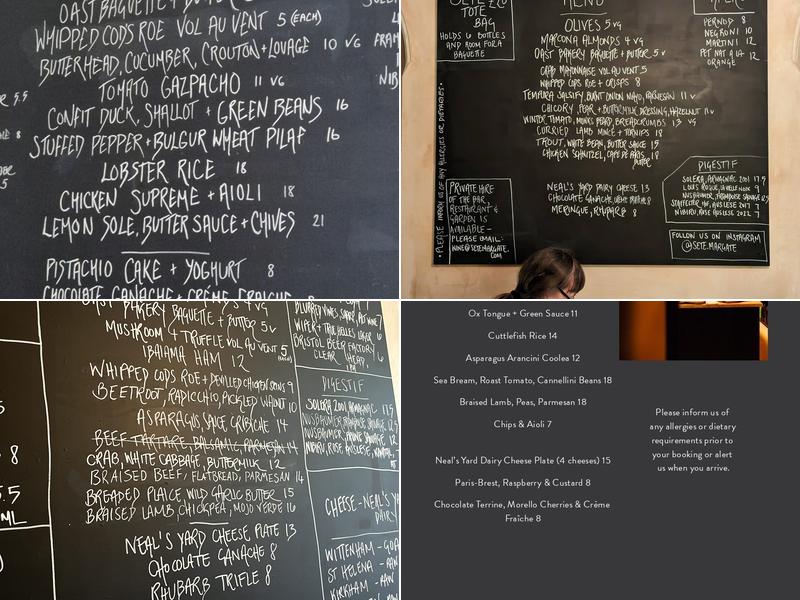 OAST BAGUETTE + BUTTER
WHIPPED CODS ROE VOL AU VENT 5 (EACH)
BUTTERHEAD, CUCUMBER, CROUTON + LOVAGE 10 VG
TOMATO GAZPACHO 11 VG
CONFIT DUCK, SHALLOT + GREEN BEANS 16
STUFFED PEPPER + BULGUR WHEAT PILAF 16
LOBSTER RICE 18
CHICKEN SUPREME + AIOLI 18
LEMON SOLE, BUTTER SAUCE + CHIVES 21
PISTACHIO CAKE + YOGHURT 8
CHOCOLATE GANACHE + CRÈME FRAICHE
5.5
TOTE
BAG
HOLDS 6 BOTTLES
AND ROOM FOR A
BAGUETTE
MENU
OLIVES 5 VG
MARCONA ALMONDS 4 VG
OAST BAKERY BAGUETTE + BUTTER 5 V
CRAB MAYONNAISE VOL AU VENT 5
WHIPPED CODS ROE + CRISPS 8
TEMPURA SALSIFY, BURNT ONION MAYO, PARMESAN 11 V
CHICORY, PEAR + BUTTERMILK DRESSING, HAZELNUT 11 V
WINTER TOMATO, MONKS BEARD, BREADCRUMBS 13 VG
CURRIED LAMB MINCE + TURNIPS 18
TROUT, WHITE BEAN, BUTTER SAUCE 15
CHICKEN SCHNITZEL, CAFE DE PARIS 18
BUTTER
NEAL'S YARD DAIRY CHEESE 13
CHOCOLATE GANACHE, CRÈME FRAICHE 8
MERINGUE, RHUBARB 8
PERNOD 8
NEGRONI 10
MARTINI 12
PET NAT 12
ORANGE
• PLEASE INFORM US OF ANY ALLERGIES OR DIETARIES •
PRIVATE HIRE
OF THE BAR,
RESTAURANT &
GARDEN IS
AVAILABLE -
PLEASE EMAIL:
WINE@SETEMARGATE.
COM
DIGESTIF
SOLERA, ARMAGNAC 2001 17.5
LOUIS ROQUE, LA VIELLE NOIX 9
NUSBAUMER, FRAMBOISE SAUVAGE 12.5
NIBIRU, RISE AUSLESE 2022 7
FOLLOW US ON INSTAGRAM
@SETE.MARGATE
OAST BAKERY BAGUETTE + BUTTER 5 V
MUSHROOM + TRUFFLE VOL AU VENT 5
(EACH)
IBAIAMA HAM 12
WHIPPED CODS ROE + DEVILLED CHICKEN SKINS 9
BEETROOT, RADICCHIO, PICKLED WALNUT 10
ASPARAGUS SAUCE GRIBICHE 14
BEEF TARTARE, BALSAMIC, PARMESAN 14
CRAB, WHITE CABBAGE, BUTTERMILK 12
BRAISED BEEF, FLATBREAD, PARMESAN 14
BREADED PLAICE, WILD GARLIC BUTTER 15
BRAISED LAMB, CHICKPEA, MOJO VERDE 16
NEAL'S YARD CHEESE PLATE 13
CHOCOLATE GANACHE 8
RHUBARB TRIFLE 8
8
5.5
ML
BRISTOL BEER FACTORY
CLEAR HEAD,
DIGESTIF
SOLERA 2001, ARMAGNAC 17.5
CHEESE - NEAL'S YARD
DAIRY
WITTENHAM - GOAT
ST HELENA - RAW
KIRKHAM - RAW
Ox Tongue + Green Sauce 11
Cuttlefish Rice 14
Asparagus Arancini Coolea 12
Sea Bream, Roast Tomato, Cannellini Beans 18
Braised Lamb, Peas, Parmesan 18
Chips & Aioli 7
Neal's Yard Dairy Cheese Plate (4 cheeses) 15
Paris-Brest, Raspberry & Custard 8
Chocolate Terrine, Morello Cherries & Crème
Fraîche 8
Please inform us of
any allergies or dietary
requirements prior to
your booking or alert
us when you arrive.